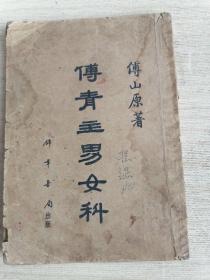 傅山原著
傅青主男女科